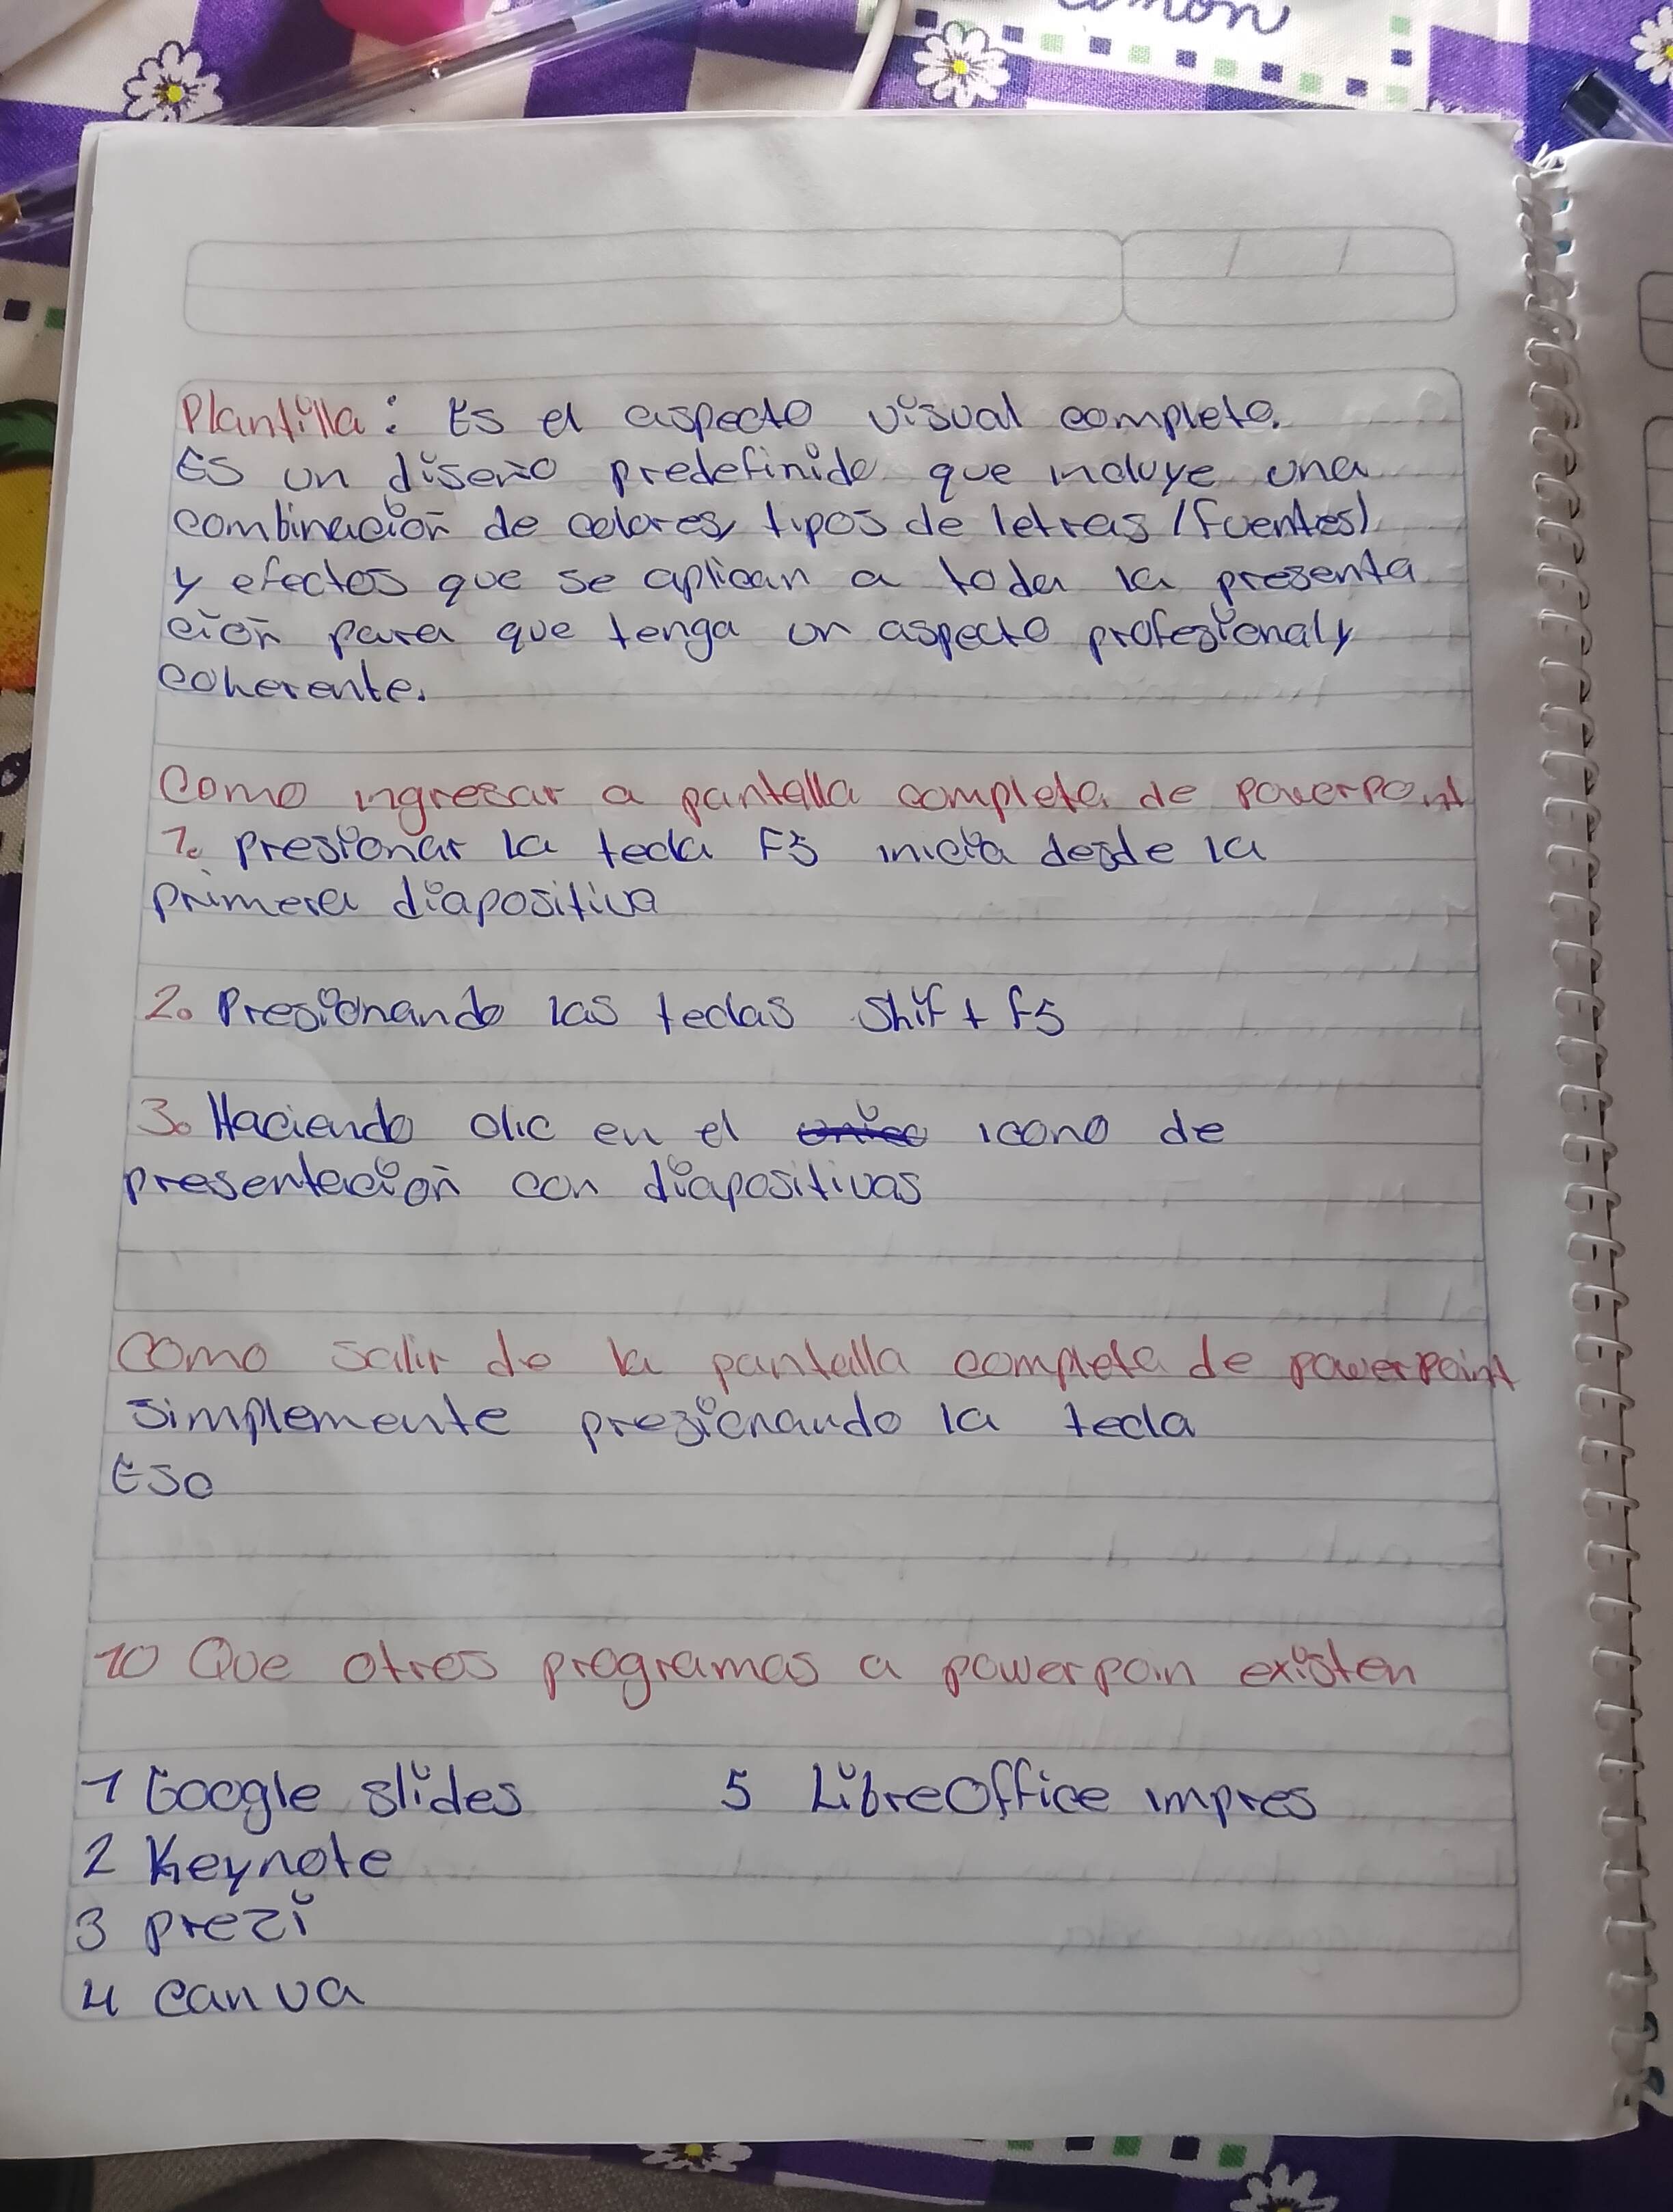 Plantilla: Es el aspecto visual completo.
Es un diseño predefinido que incluye una
combinación de colores, tipos de letras (fuentes)
y efectos que se aplican a toda la presenta
ción para que tenga un aspecto profezional y
coherente.
Como ingresar a pantalla completa de powerpoint
1. Presionar la tecla F5 inicia desde la
primera diapositiva
2. Presionando las teclas Shif + F5
3. Haciendo clic en el icono de
presentación con diapositivas
Como salir de la pantalla completa de powerpoint
simplemente prezionando la tecla
Esc
10 Que otros programas a powerpoin existen
1 Google slides
2 Keynote
3 prezi
4 canva
5 LibreOffice impres